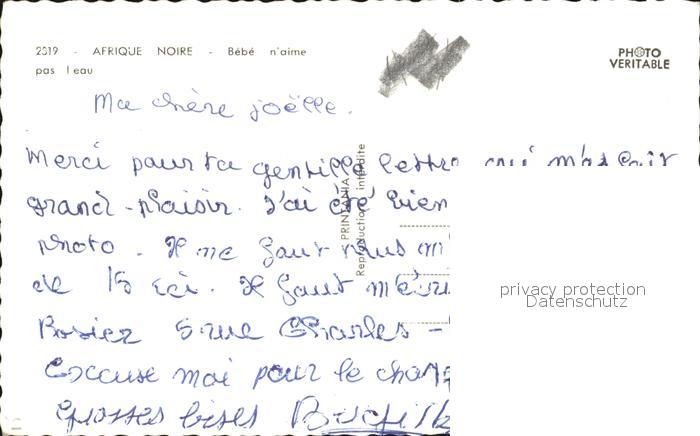 2319 - AFRIQUE NOIRE - Bébé n'aime
pas l eau
PHOTO
VERITABLE
Ma chère joëlle.
Merci pour ta gentille lettre qui m'as fait
grand-plaisir. J'ai été bien
photo. Il me faut
de 15 ici. Il faut
Rosiez 5 rue Charles -
Excuse moi pour le
grosses bises
PRINTANIA
Reproduction interdite
privacy protection
Datenschutz